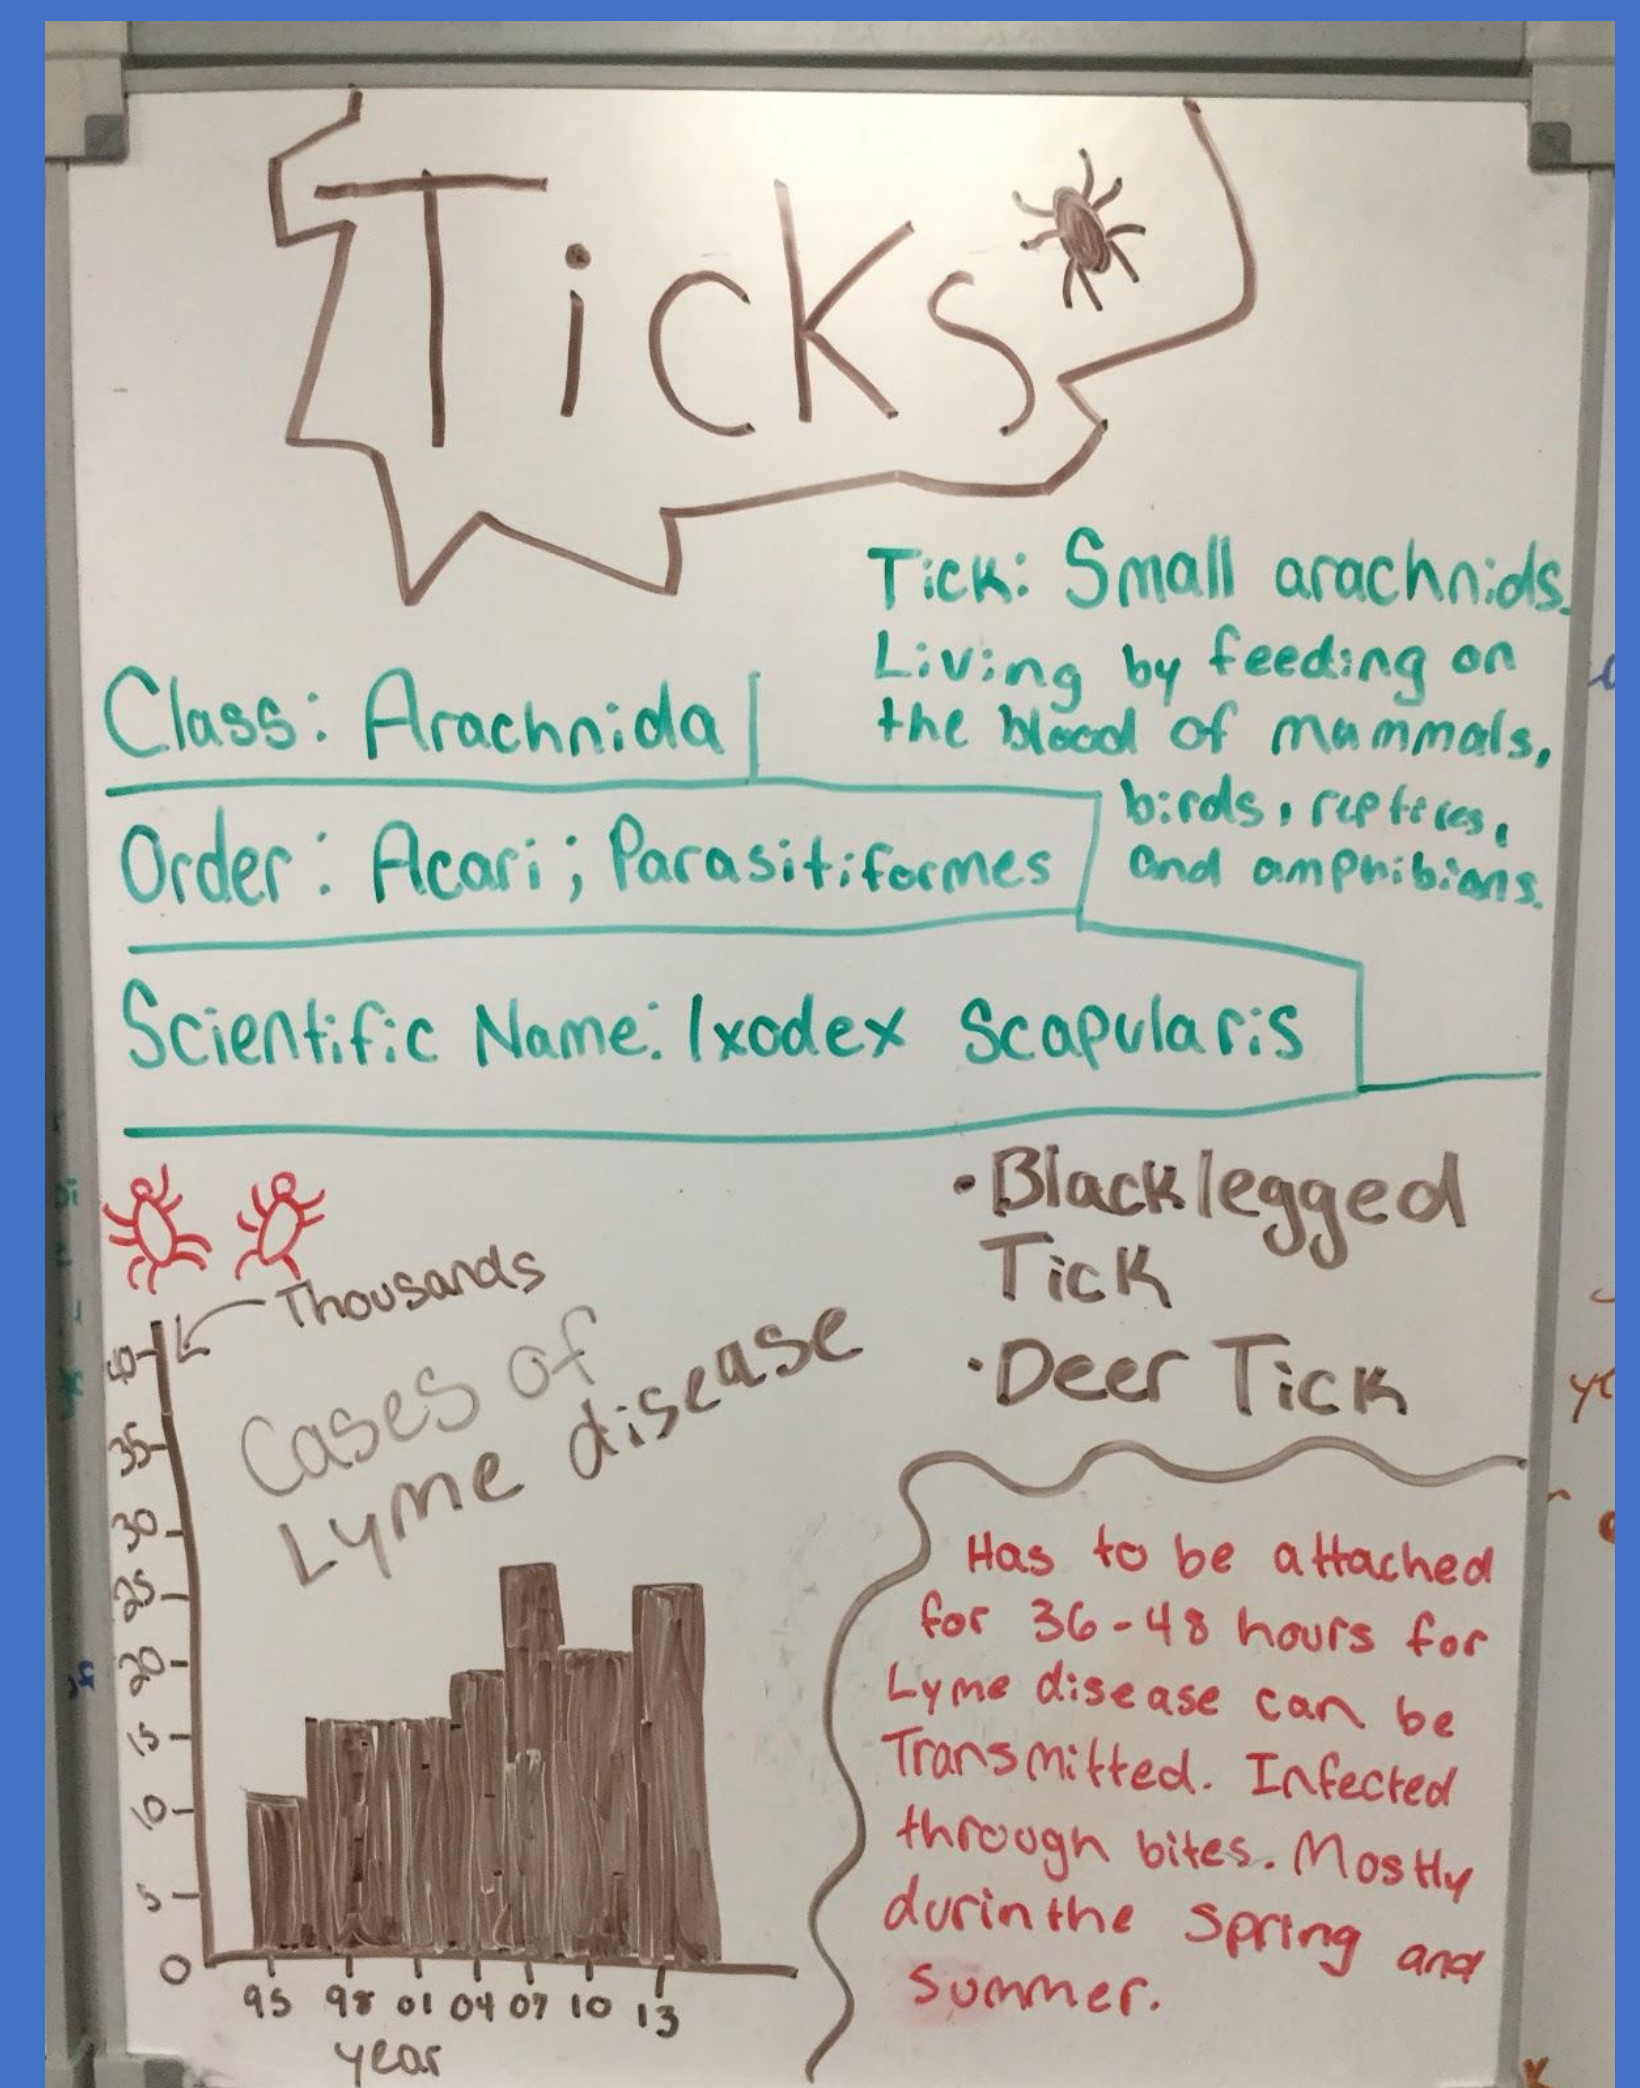 Ticks
Tick: Small arachnids.
Living by feeding on
the blood of mammals,
birds, reptiles,
and amphibians.
Class: Arachnida
Order: Acari; Parasitiformes
Scientific Name: Ixodex Scapularis
• Blacklegged
Tick
• Deer Tick
Thousands
Cases of
Lyme disease
40
35
30
25
20
15
10
5
0
95 98 01 04 07 10 13
year
Has to be attached
for 36-48 hours for
Lyme disease can be
Transmitted. Infected
through bites. Mostly
durinthe Spring and
Summer.